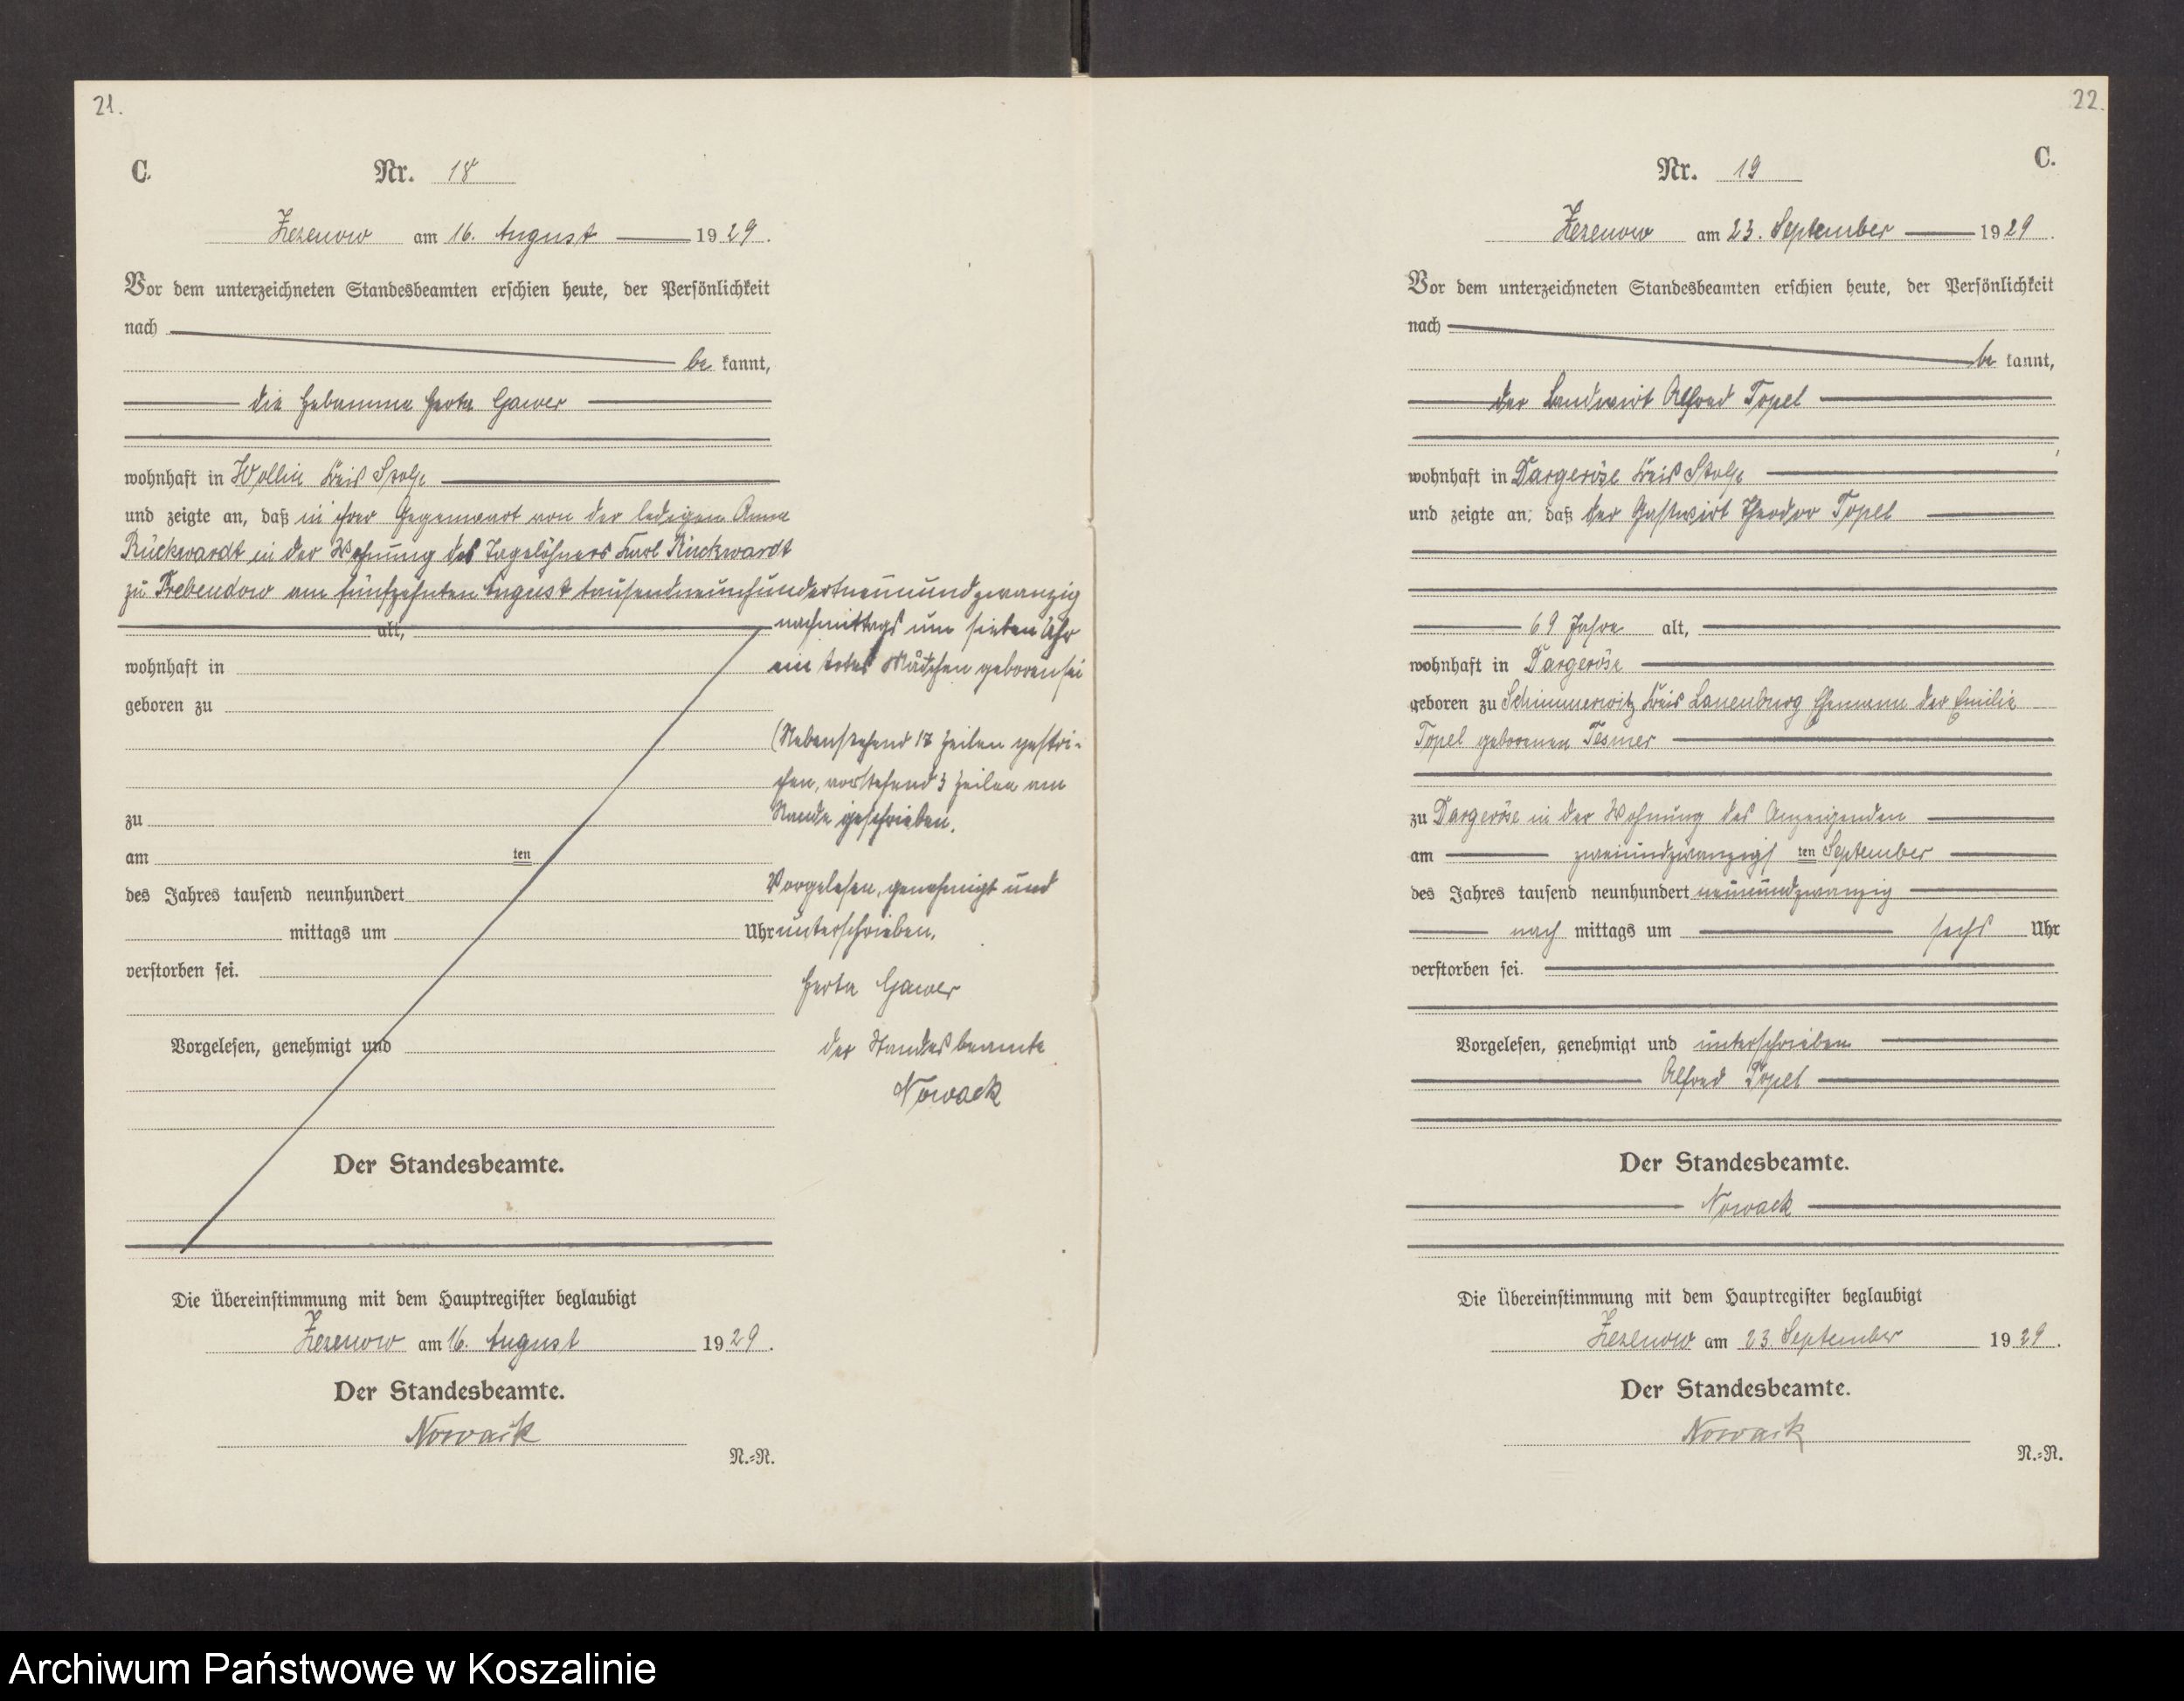 21.
C.
Nr. 18
Zezenow am 16. August 1929.
Vor dem unterzeichneten Standesbeamten erschien heute, der Persönlichkeit
nach
be kannt,
die Hebamme Herta Gawer
wohnhaft in Wollin Kreis Stolp
und zeigte an, daß in ihrer Gegenwart von der ledigen Anna
Rückwardt in der Wohnung des Tagelöhners Karl Rückwardt
zu Trebendow am fünfzehnten August tausendneunhundertneunundzwanzig
alt, nachmittags um sieben Uhr
wohnhaft in ein totes Mädchen geboren sei
geboren zu
(Nebenstehend 17 Zeilen gestri-
chen, vorstehend 3 Zeilen am
zu Rande geschrieben.
am ten
des Jahres tausend neunhundert Vorgelesen, genehmigt und
mittags um Uhr unterschrieben.
verstorben sei.
Herta Gawer
Vorgelesen, genehmigt und der Standesbeamte
Nowack
Der Standesbeamte.
Die Übereinstimmung mit dem Hauptregister beglaubigt
Zezenow am 16. August 1929.
Der Standesbeamte.
Nowack
N.=N.
22.
C.
Nr. 19
Zezenow am 23. September 1929.
Vor dem unterzeichneten Standesbeamten erschien heute, der Persönlichkeit
nach
be kannt,
der Landwirt Alfred Topel
wohnhaft in Dargeröse Kreis Stolp
und zeigte an, daß der Gastwirt Theodor Topel
69 Jahre alt,
wohnhaft in Dargeröse
geboren zu Schimmerwitz Kreis Lauenburg Ehemann der Emilie
Topel geborenen Tesmer
zu Dargeröse in der Wohnung des Anzeigenden
am zweiundzwanzigs ten September
des Jahres tausend neunhundert neunundzwanzig
nach mittags um sechs Uhr
verstorben sei.
Vorgelesen, genehmigt und unterschrieben
Alfred Topel
Der Standesbeamte.
Nowack
Die Übereinstimmung mit dem Hauptregister beglaubigt
Zezenow am 23. September 1929.
Der Standesbeamte.
Nowack
N.=N.
Archiwum Państwowe w Koszalinie